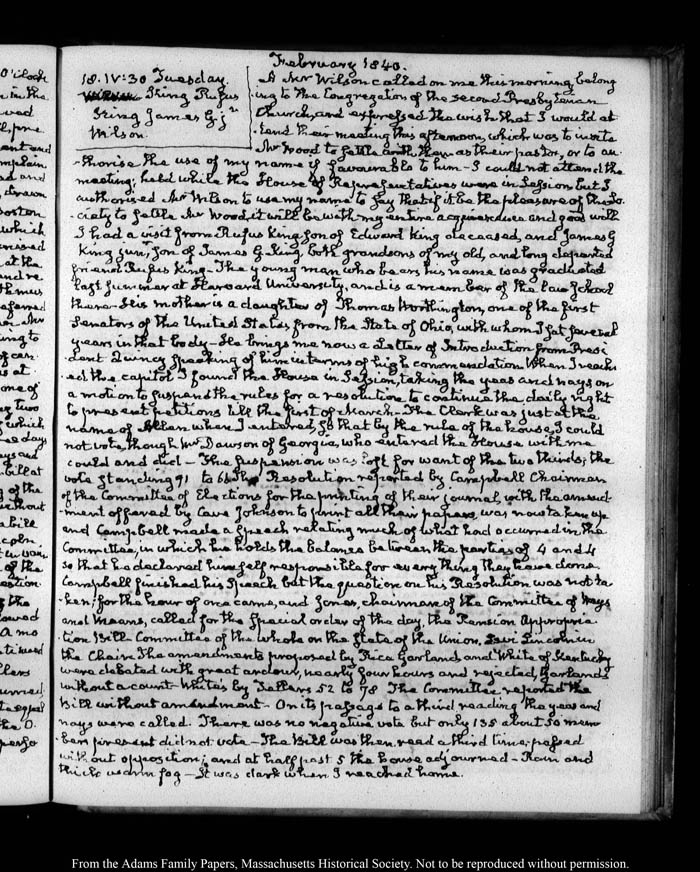 February 1840.
18. IV:30 Tuesday.
King Rufus
King James G. jr
Wilson.
A Mr Wilson called on me this morning, belong
ing to the Congregation of the second Presbyterian
Church, and expressed the wish that I would at
tend their meeting this afternoon, which was to invite
Mr Wood to settle with them as their pastor, or to au
thorise the use of my name if favourable to him - I could not attend the
meeting, held while the House of Representatives were in Session but I
authorised Mr Wilson to use my name to say that if it be the pleasure of the So
ciety to settle Mr Wood, it will be with my entire acquiescence and good will
I had a visit from Rufus King, son of Edward King deceased, and James G
King junr, son of James G. King, both grandsons of my old, and long departed
friend Rufus King - The young man who bears his name was graduated
last summer at Harvard University, and is a member of the law School
there - His mother is a daughter of Thomas Worthington, one of the first
Senators of the United States, from the State of Ohio, with whom I sat several
years in that body - He brings me now a Letter of Introduction from Presi
dent Quincy speaking of him in terms of high commendation. When I reach
ed the capitol I found the House in Session, taking the yeas and nays on
a motion to suspend the rules for a resolution to continue the daily right
to present petitions till the first of March - The Clerk was just at the
name of Allen when I entered, so that by the rule of the house, I could
not vote, though Mr Dawson of Georgia, who entered the House with me
could and did - The suspension was lost for want of the two thirds; the
vote standing 91 to 65 The Resolution reported by Campbell Chairman
of the Committee of Elections for the printing of their journal, with the amend
ment offered by Cave Johnson to print all their papers was now taken up
and Campbell made a speech relating much of what had occurred in the
Committee, in which he holds the balance between the parties of 4 and 4
so that he declared himself responsible for every thing they have done.
Campbell finished his speech but the question on his Resolution was not ta
ken; for the hour of one came, and Jones, chairman of the Committee of Ways
and Means, called for the special order of the day, the Pension Appropria
tion Bill - Committee of the whole on the state of the Union, Levi Lincoln in
the Chair. The amendments proposed by Rice Garland and White of Kentucky
were debated with great ardour, nearly four hours and rejected, Garlands
without a count - White's by Tellers 52 to 78 The Committee reported the
Bill without amendment - On its passage to a third reading the yeas and
nays were called. There was no negative vote but only 135 about 50 mem
bers present did not vote - The Bill was then read a third time, passed
without opposition; and at half past 5 the house adjourned - Rain and
thick warm fog - It was dark when I reached home.
From the Adams Family Papers, Massachusetts Historical Society. Not to be reproduced without permission.